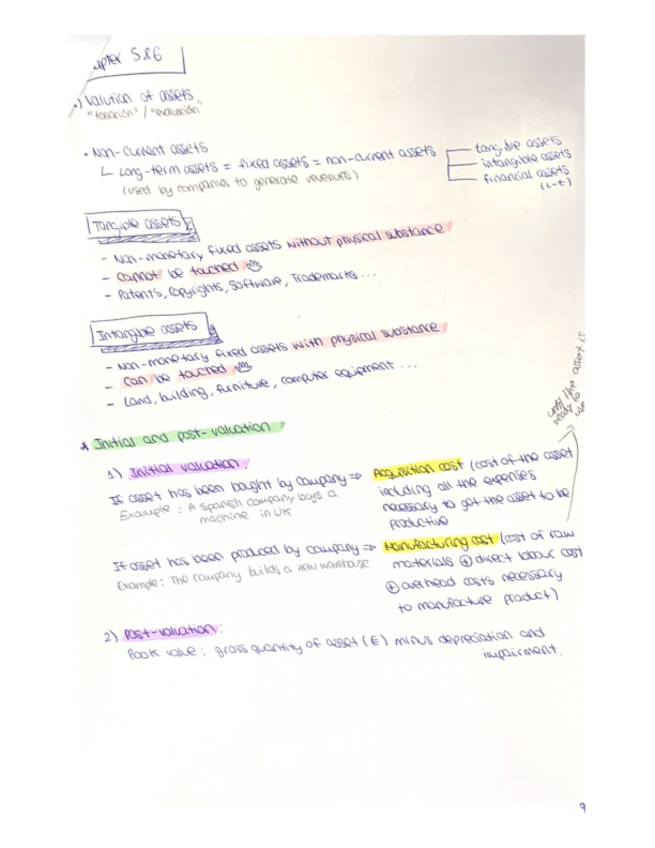 apter 5&6
) Valution of assets
"tasación" / "evaluación"
• Non-current assets
Long-term assets = fixed assets = non-current assets
(used by companies to generate revenues)
tangible assets
intangible assets
financial assets
(L-t)
Tangible assets
- Non-monetary fixed assets without physical substance
- Cannot be touched
- Patents, Copyrights, Software, Trademarks ...
Intangible assets
- Non-monetary fixed assets with physical substance
- Can be touched
- Land, building, furniture, computer equipment ...
* Initial and post-valuation
1) Initial valuation:
If asset has been bought by company => Acquisition cost (cost of the asset
Example: A Spanish company buys a
machine in UK
including all the expenses
necessary to get the asset to be
productive
until the asset is
ready to
use
If asset has been produced by company => Manufacturing cost (cost of raw
Example: The company builds a new warehouse
materials ⊕ direct labour cost
⊕ overhead costs necessary
to manufacture product)
2) Post-valuation:
Book value: gross quantity of asset (€) minus depreciation and
impairment.
9